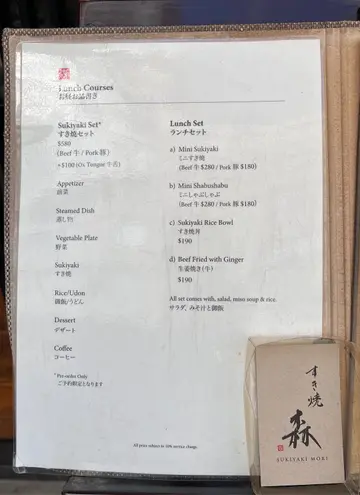 Lunch Courses
お昼お品書き
Sukiyaki Set*
すき焼セット
$580
(Beef 牛 / Pork 豚)
+$100 (Ox Tongue 牛舌)
Appetizer
前菜
Steamed Dish
蒸し物
Vegetable Plate
野菜
Sukiyaki
すき焼
Rice/Udon
御飯/うどん
Dessert
デザート
Coffee
コーヒー
* Pre-order Only
ご予約限定となります
Lunch Set
ランチセット
a) Mini Sukiyaki
ミニすき焼
(Beef 牛 $280 / Pork 豚 $180)
b) Mini Shabushabu
ミニしゃぶしゃぶ
(Beef 牛 $280 / Pork 豚 $180)
c) Sukiyaki Rice Bowl
すき焼丼
$190
d) Beef Fried with Ginger
生姜焼き(牛)
$190
All set comes with, salad, miso soup & rice.
サラダ, みそ汁と御飯
All price subject to 10% service charge.
すき焼
森
SUKIYAKI MORI